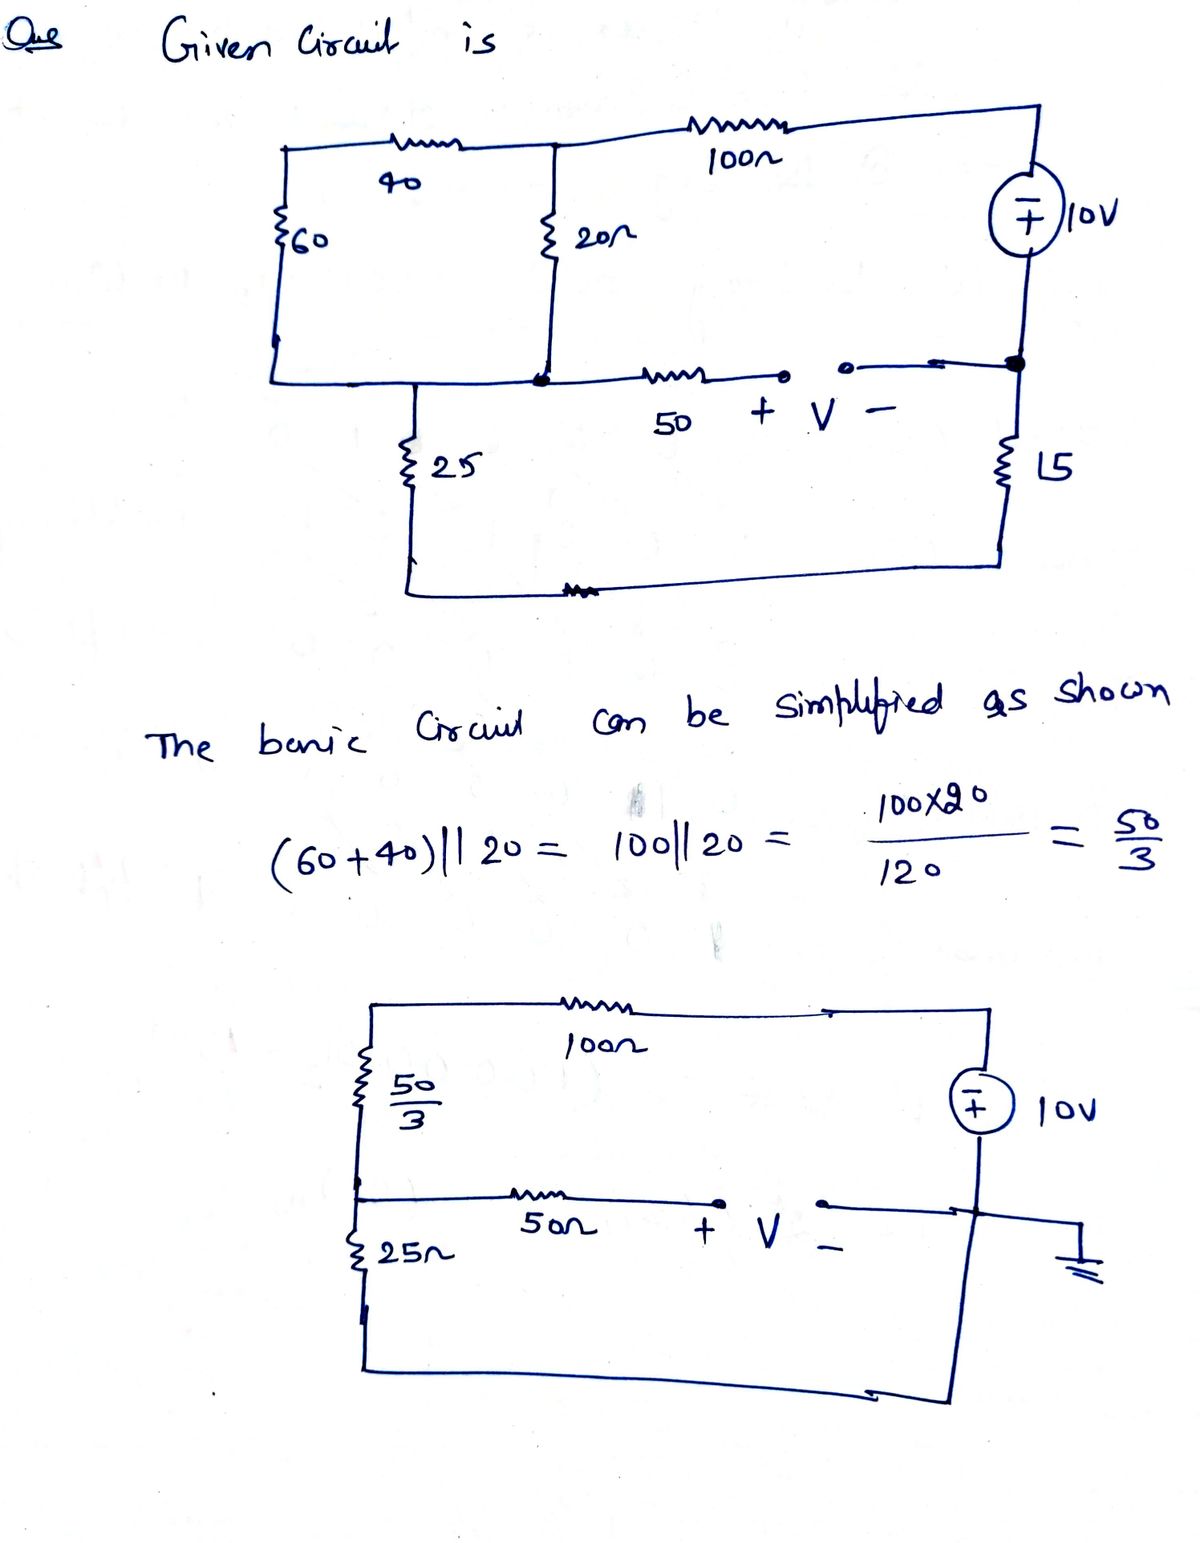 Que Given Circuit is
40
100Ω
60
20Ω
- + 10V
50
+ V -
25
15
The basic Circuit can be simplified as shown
(60+40)||20 = 100||20 = 100×20 / 120 = 50/3
100Ω
50/3
- + 10V
50Ω
+ V -
25Ω